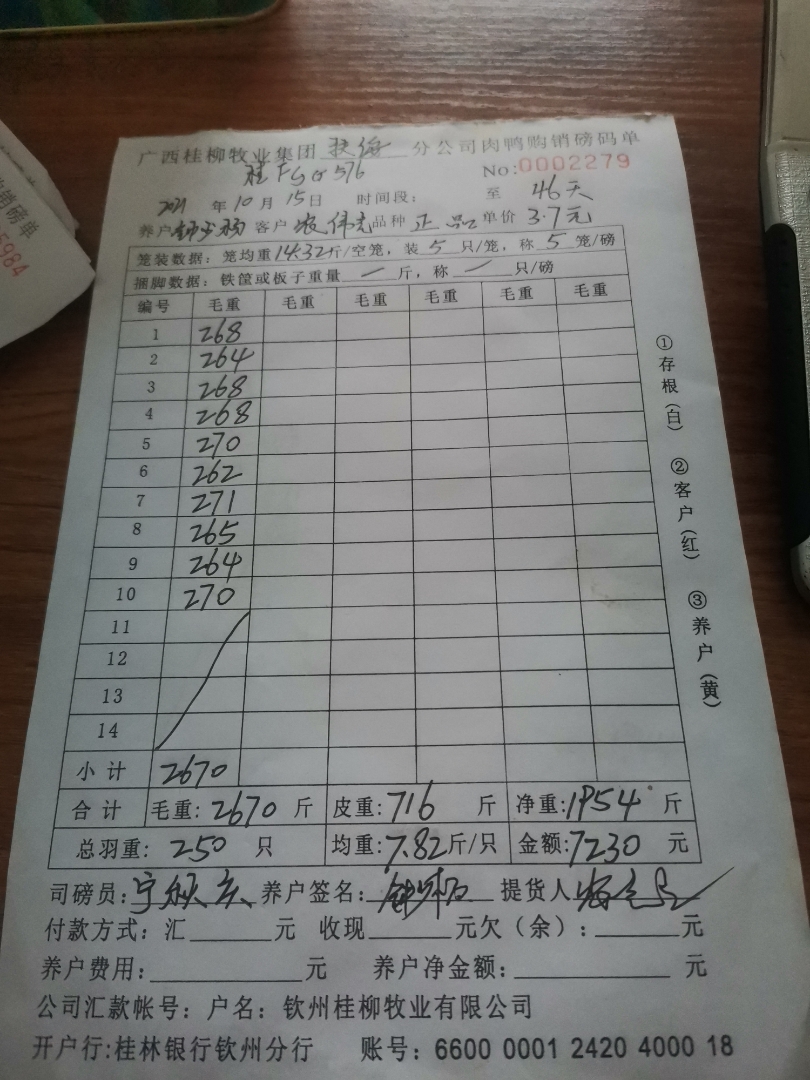 广西桂柳牧业集团 分公司肉鸭购销磅码单
桂F 576 No:0002279
2021年10月15日 时间段: 至 46天
养户 客户 农伟 品种 正品 单价 3.7元
笼装数据：笼均重14.32斤/空笼，装5只/笼，称5笼/磅
捆脚数据：铁筐或板子重量 / 斤，称 / 只/磅
编号 毛重 毛重 毛重 毛重 毛重 毛重
1 268
2 264
3 268
4 268
5 270
6 262
7 271
8 265
9 264
10 270
11
12
13
14
小计 2670
合计 毛重:2670斤 皮重:716斤 净重:1954斤
总羽重: 250只 均重:7.82斤/只 金额:7230元
司磅员: 养户签名: 提货人
付款方式：汇______元 收现______元欠（余）:______元
养户费用:______元 养户净金额:______元
公司汇款帐号：户名：钦州桂柳牧业有限公司
开户行:桂林银行钦州分行 账号：6600 0001 2420 4000 18
①存根（白） ②客户（红） ③养户（黄）
磅单
5984